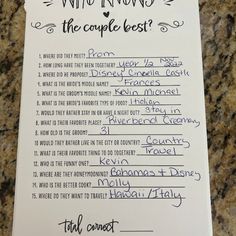 WHO KNOWS
the couple best?
1. WHERE DID THEY MEET? Prom
2. HOW LONG HAVE THEY BEEN TOGETHER? year 1/2 Nov 2022
3. WHERE DID HE PROPOSE? Disney Cinderella Castle
4. WHAT IS THE BRIDE'S MIDDLE NAME? Frances
5. WHAT IS THE GROOM'S MIDDLE NAME? Kevin Michael
6. WHAT IS THE BRIDE'S FAVORITE TYPE OF FOOD? Italian
7. WOULD THEY RATHER STAY IN OR HAVE A NIGHT OUT? Stay in
8. WHAT IS THEIR FAVORITE PLACE? Riverbend Creamery
9. HOW OLD IS THE GROOM? 31
10. WOULD THEY RATHER LIVE IN THE CITY OR COUNTRY? Country
11. WHAT IS THEIR FAVORITE THING TO DO TOGETHER? Travel
12. WHO IS THE FUNNY ONE? Kevin
13. WHERE ARE THEY HONEYMOONING? Bahamas + Disney
14. WHO IS THE BETTER COOK? Molly
15. WHERE DO THEY WANT TO TRAVEL? Hawaii/Italy
Total correct